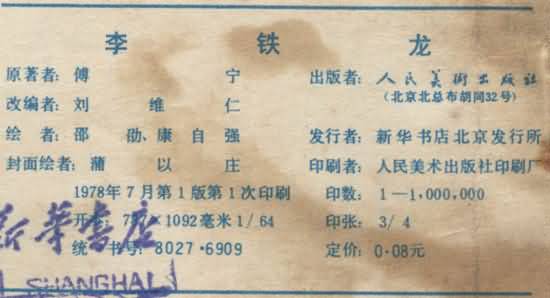 李铁龙
原著者：傅宁 出版者：人民美术出版社
（北京北总布胡同32号）
改编者：刘维仁
绘者：邵劭、康自强 发行者：新华书店北京发行所
封面绘者：蒲以庄 印刷者：人民美术出版社印刷厂
1978年7月第1版第1次印刷 印数：1—1,000,000
开本：787×1092毫米1/64 印张：3/4
统一书号：8027·6909 定价：0·08元
新华書店
SHANGHAI